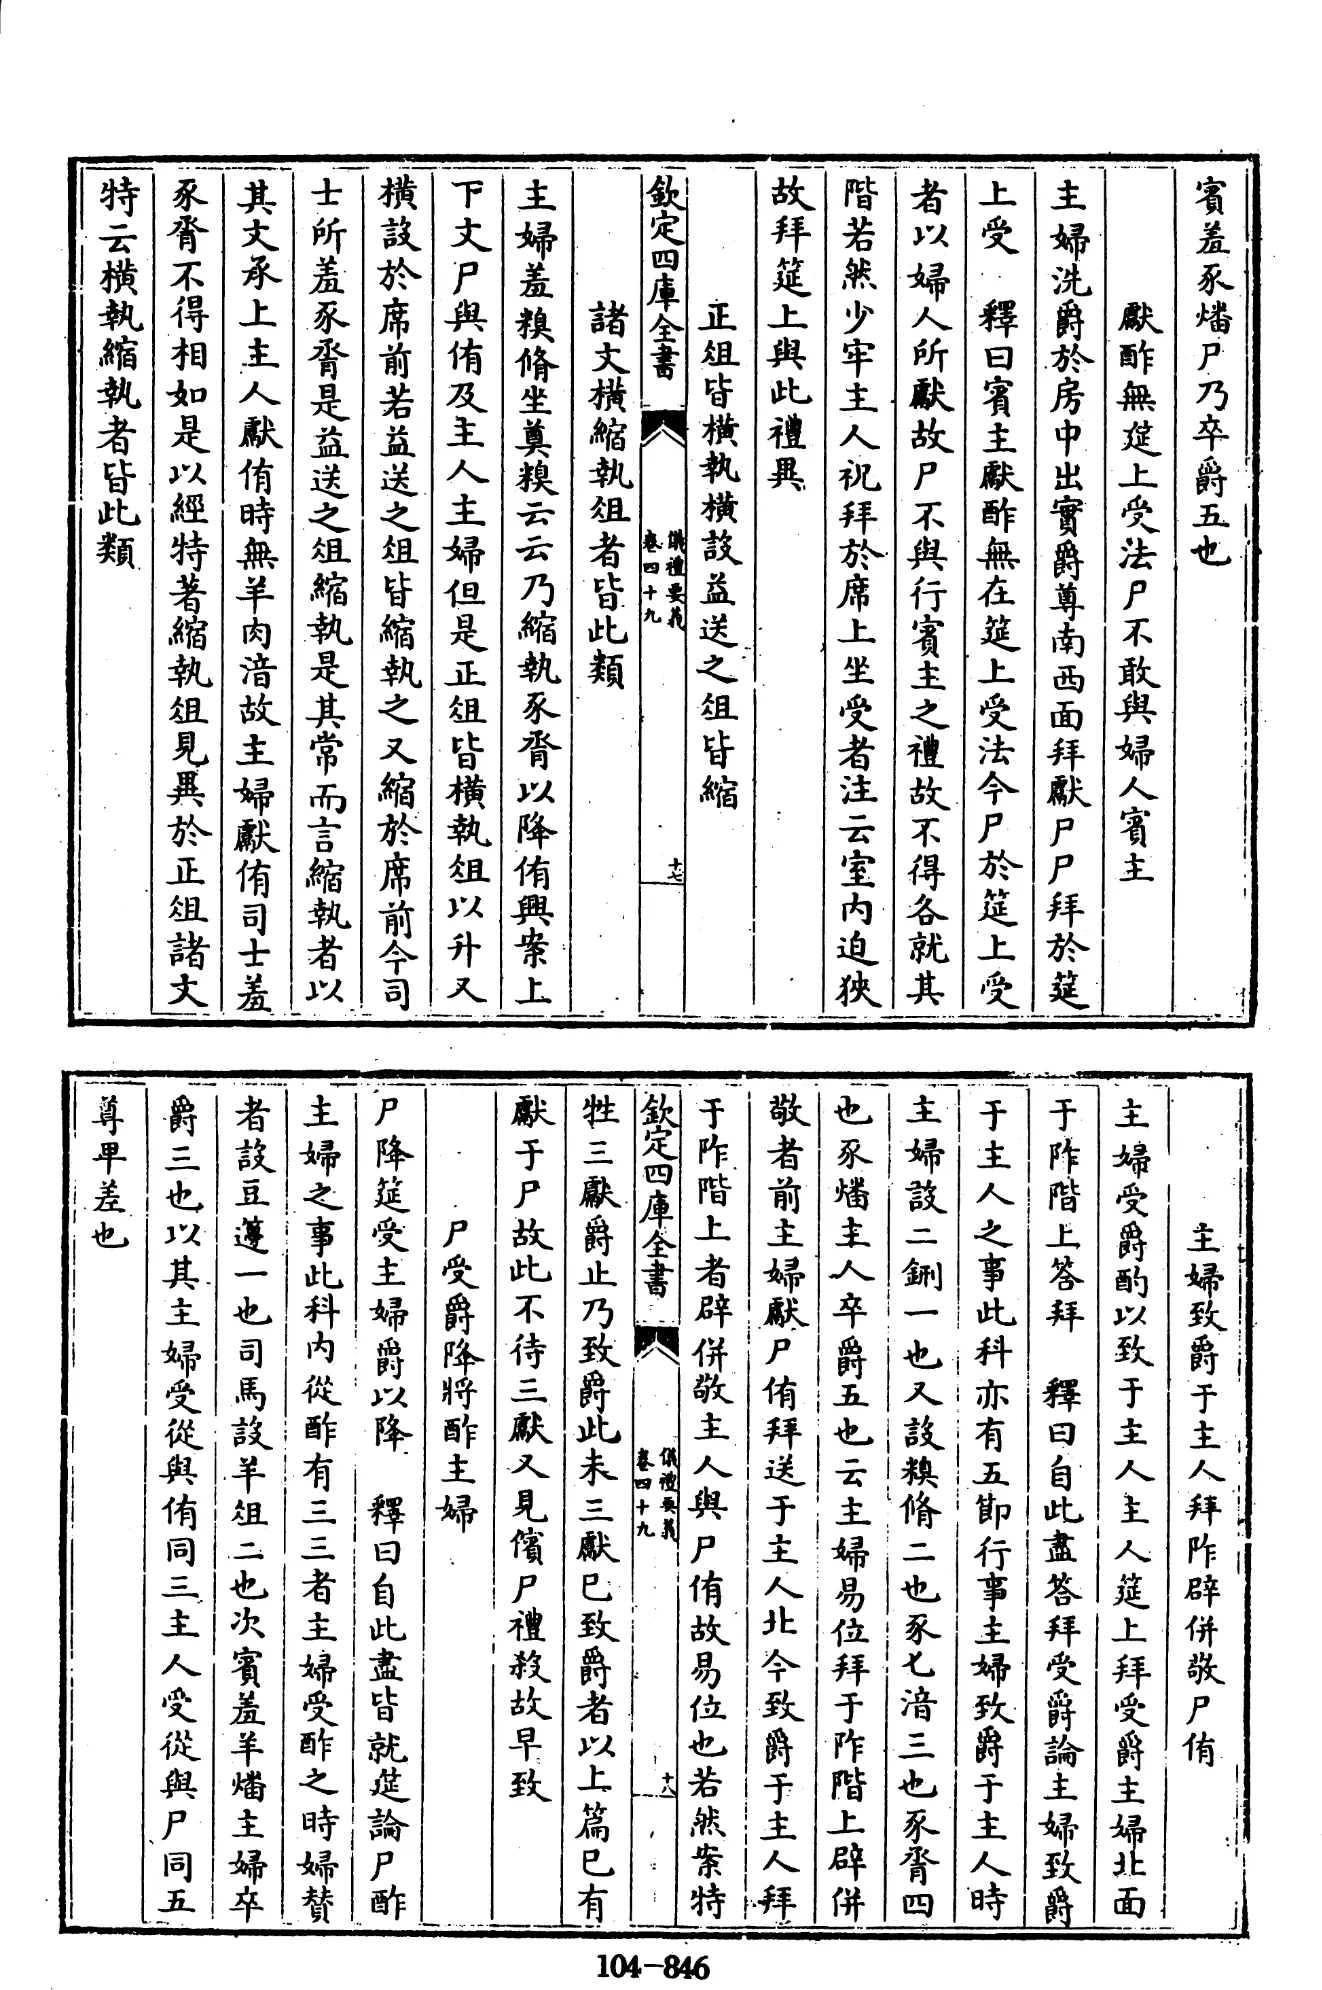 賓羞豕燔尸乃卒爵五也
獻酢無筵上受法尸不敢與婦人賓主
主婦洗爵於房中出實爵尊南西面拜獻尸尸拜於筵
上受　釋曰賓主獻酢無在筵上受法今尸於筵上受
者以婦人所獻故尸不與行賓主之禮故不得各就其
階若然少牢主人祝拜於席上坐受者注云室内迫狹
故拜筵上與此禮異
正俎皆横執横設益送之俎皆縮
欽定四庫全書
儀禮要義
卷四十九
十七
諸文横縮執俎者皆此類
主婦羞糗脩坐奠糗云云乃縮執豕脀以降侑興案上
下文尸與侑及主人主婦但是正俎皆横執俎以升又
横設於席前若益送之俎皆縮執之又縮於席前今司
士所羞豕脀是益送之俎縮執是其常而言縮執者以
其文承上主人獻侑時無羊肉湆故主婦獻侑司士羞
豕脀不得相如是以經特著縮執俎見異於正俎諸文
特云横執縮執者皆此類
主婦致爵于主人拜阼辟併敬尸侑
主婦受爵酌以致于主人主人筵上拜受爵主婦北面
于阼階上答拜　釋曰自此盡答拜受爵論主婦致爵
于主人之事此科亦有五節行事主婦致爵于主人時
主婦設二鉶一也又設糗脩二也豕匕湆三也豕脀四
也豕燔主人卒爵五也云主婦易位拜于阼階上辟併
敬者前主婦獻尸侑拜送于主人北今致爵于主人拜
于阼階上者辟併敬主人與尸侑故易位也若然案特
欽定四庫全書
儀禮要義
卷四十九
十八
牲三獻爵止乃致爵此未三獻已致爵者以上篇已有
獻于尸故此不待三獻又見儐尸禮殺故早致
尸受爵降將酢主婦
尸降筵受主婦爵以降　釋曰自此盡皆就筵論尸酢
主婦之事此科内從酢有三三者主婦受酢之時婦贊
者設豆籩一也司馬設羊俎二也次賓羞羊燔主婦卒
爵三也以其主婦受從與侑同三主人受從與尸同五
尊卑差也
104-846